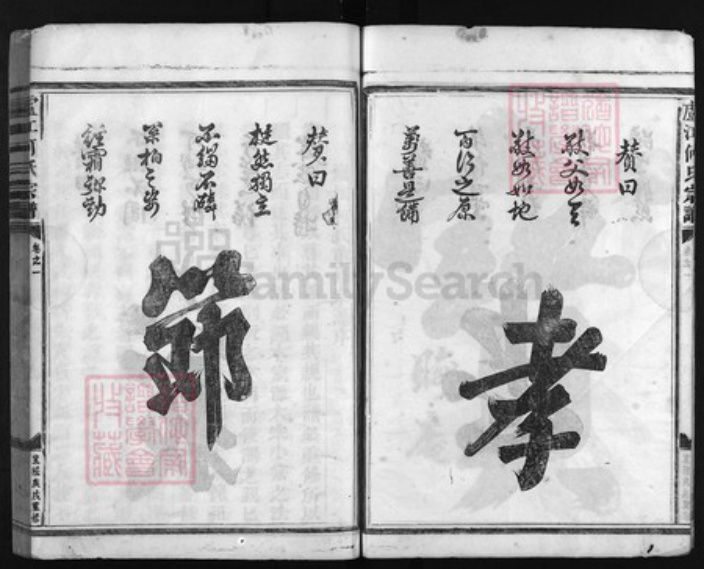 贊曰
敬父如天
敬母如地
百行之原
萬善是誦
孝
廬江何氏宗譜
贊曰
挺然獨立
不緇不磷
策柏之姿
經霜弥勁
節
廬江何氏宗譜
卷之一
FamilySearch